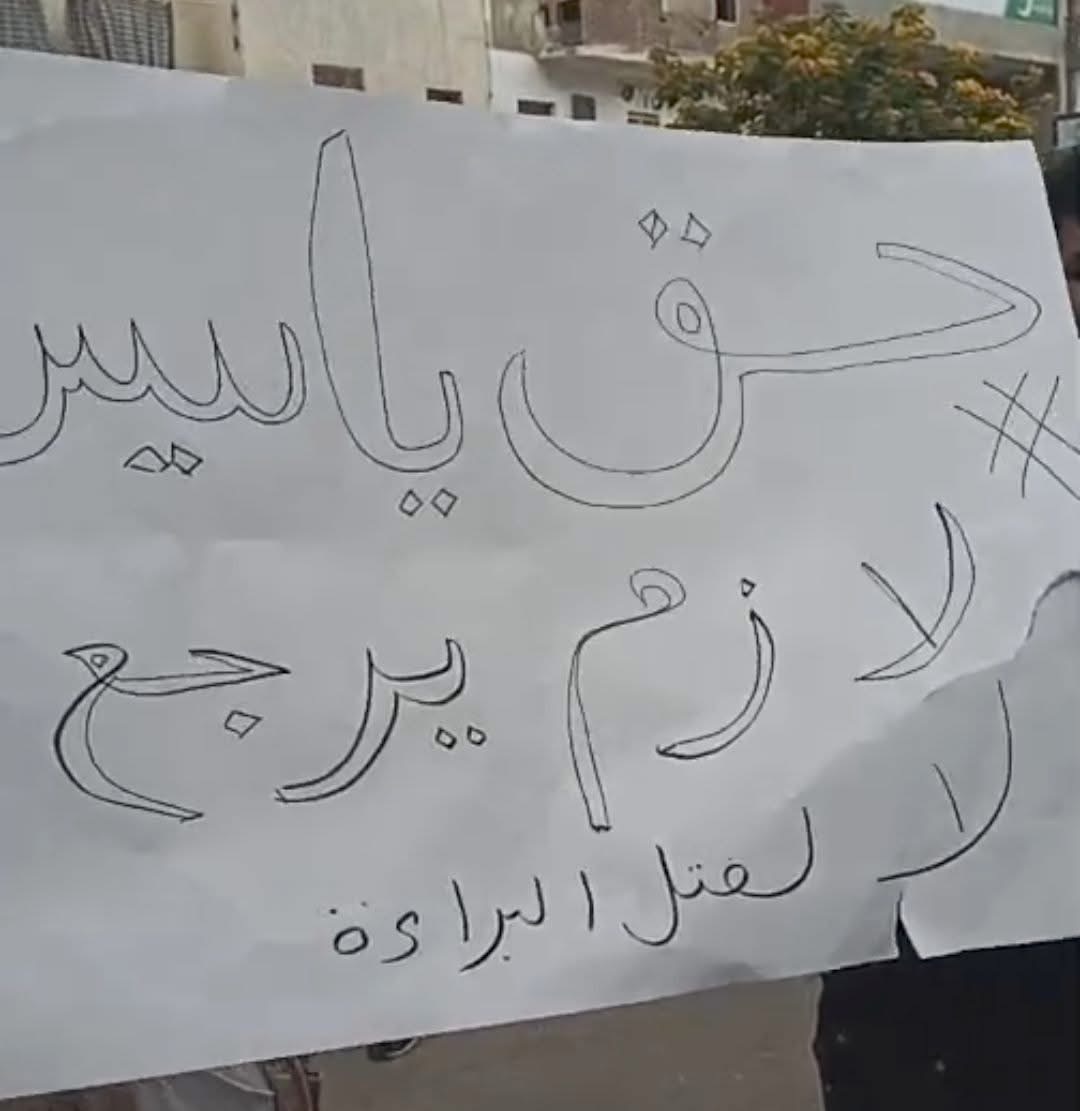 #حق ياسين
لازم يرجع
لا لقتل البراءة